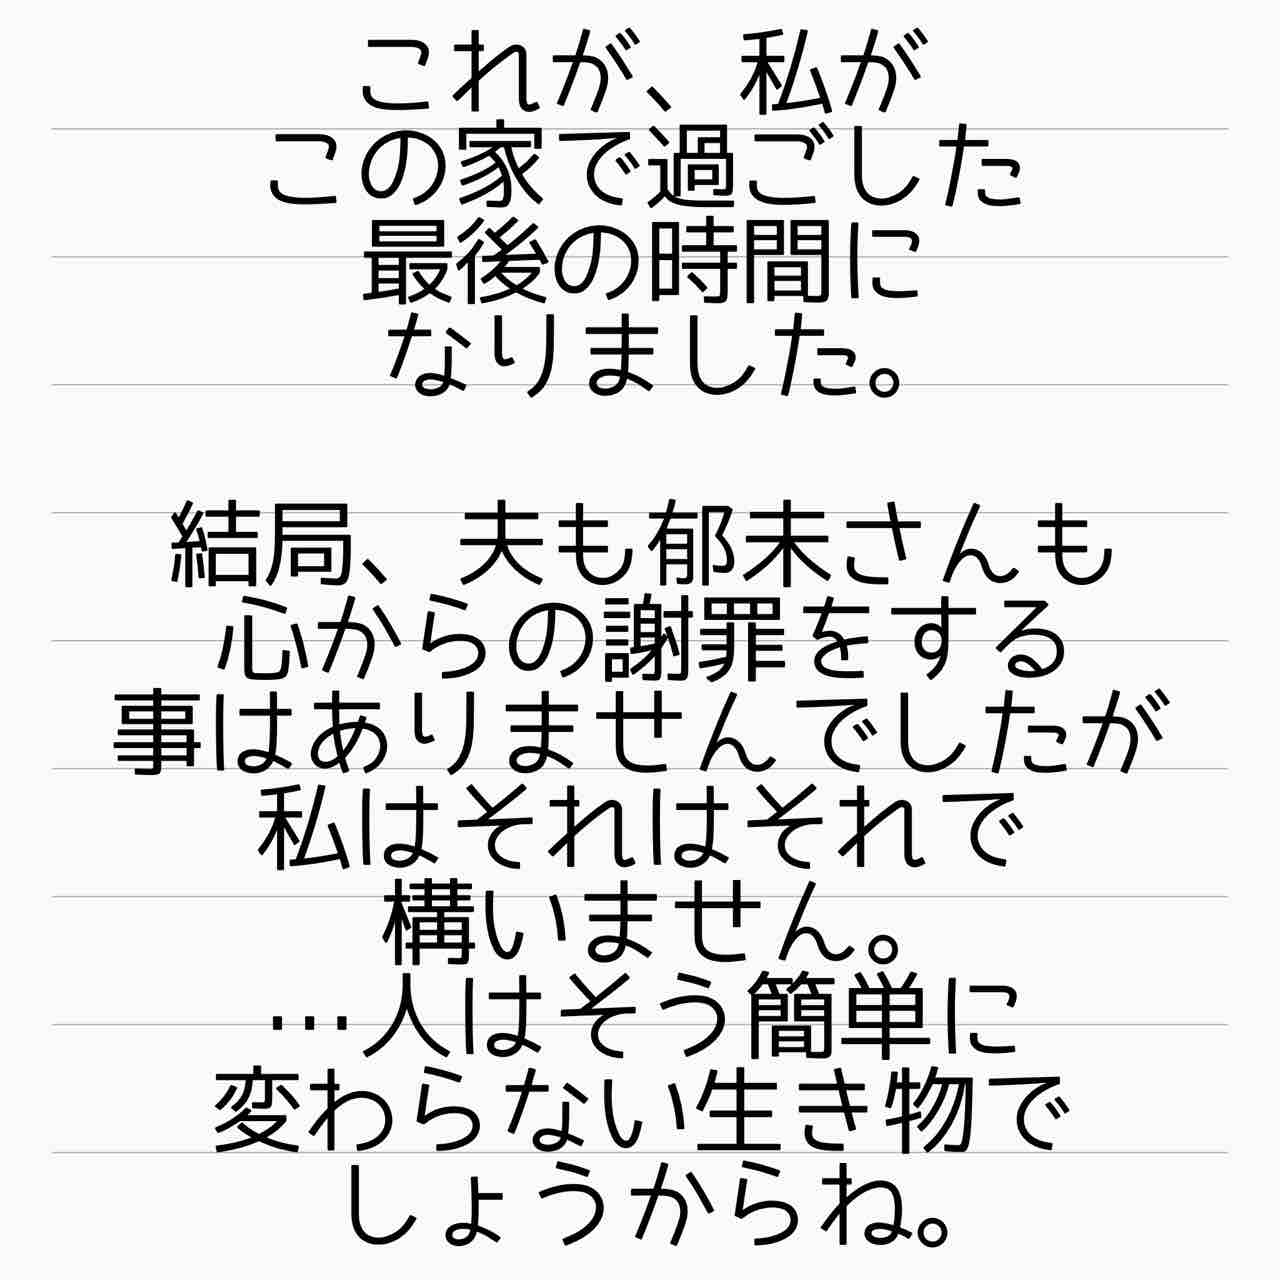 これが、私が
この家で過ごした
最後の時間に
なりました。
結局、夫も郁未さんも
心からの謝罪をする
事はありませんでしたが
私はそれはそれで
構いません。
…人はそう簡単に
変わらない生き物で
しょうからね。